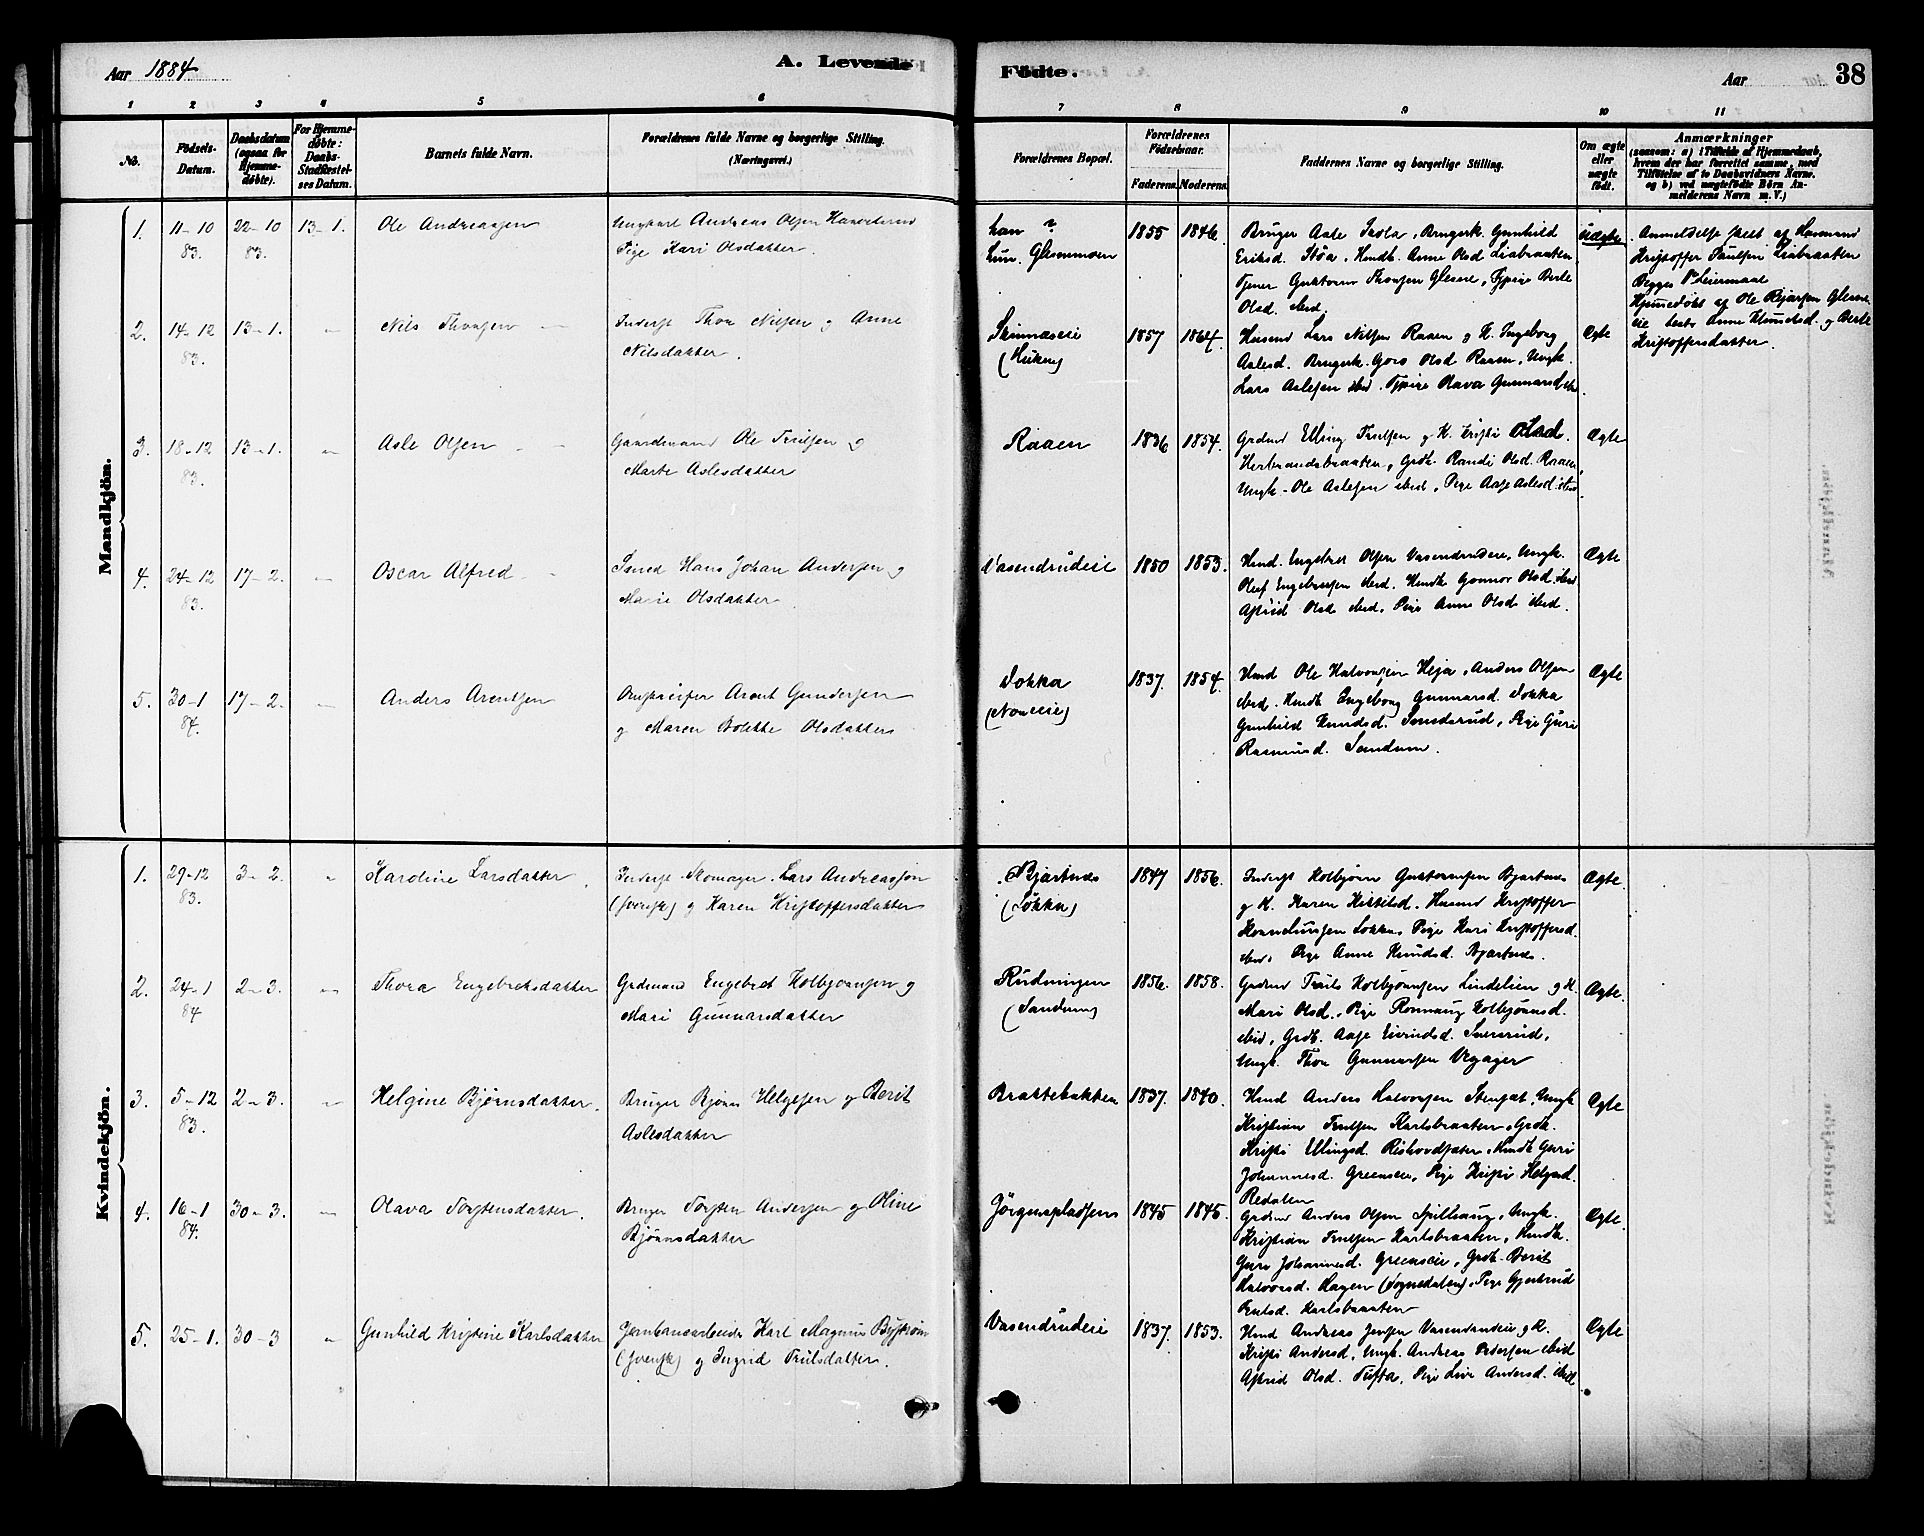 Aar 1884.
A. Levende
Fødte.
Aar
38
1 2 3 4 5 6 7 8 9 10 11
No.
Fødsels-
Datum.
Daabsdatum
(ogsaa for
Hjemme-
døbte).
For Hjemme-
døbte:
Daabs-
Stadfæstel-
ses Datum.
Barnets fulde Navn.
Forældrenes fulde Navne og borgerlige Stilling.
(Næringsvei.)
Forældrenes Bopæl.
Forældrenes
Fødselsaar.
Faderens. Moderens.
Faddernes Navne og borgerlige Stilling.
Om ægte
eller
uægte
født.
Anmærkninger
(saasom: a) i Tilfælde af Hjemmedaab,
hvem der har forrettet samme, med
Tilføielse af to Daabsvidners Navne.
og b) ved uægtefødte Børn An-
melderens Navn m. V.)
Mandkjön.
1. 11-10 83. 22-10 83. 13-1. Ole Andreassen
Ungkarl Andreas Olsen
Pige Kari Olsdatter
han ?
hun. Glesnmoen
1855 1846.
Bruger Asle Skola, Brugerk. Gunhild
Eriksd. Støa, Hmdk. Anne Olsd Liabraaten
Tjener Guttorm Thorsen Glesne, Tjpige Berte
Olsd. ibid.
Uægte
Anmeldelse skeet af Husmand
Kristoffer Paulsen Liabraaten
Begges 1ste Leiermaal
Hjemmedøbt af Ole Bjørnsen Glesne-
eie testes Anne Knudsd. og Berte
Kristoffersdatter.
2. 14-12 83. 13-1. " Nils Thorsen
Inderst Thor Nilsen og Anne
Nilsdatter.
Skinnæseie
1857 1864.
Husmd Lars Nilsen Raaen og K. Ingeborg
Aslesd. Brugerk. Goro Olsd Raaen, Ungk.
Lars Aslesen ibid. Tjpige Olava Gunnarsd ibd.
Ægte
3. 18-12 83. 13-1. " Asle Olsen
Gaardmand Ole Trulsen og
Marte Aslesdatter
Raaen
1836 1854.
Grdmd Elling Trulsen og K. Kristi Olsd.
Herbrandsbraaten, Grdk. Randi Olsd. Raaen,
Ungk. Ole Aslesen ibid, Pige Aase Aslesd. ibid.
Ægte
4. 24-12 83. 17-2. " Oscar Alfred
Smed Hans Johan Andersen og
Marie Olsdatter
Vasendrudeie
1850 1853.
Hmd. Engebret Olsen Vasendrudeie, Ungk.
Oluf Engebretsen ibid. Hmdk Gonnor Olsd. ibid
Astrid Olsd ibid, Pige Anne Olsd ibid.
Ægte
5. 30-1 84. 17-2. " Anders Arentsen
Arent Gundersen
og Maren Bolette Olsdatter
Sokka
1837. 1854.
Hmd Ole Halvorsen Heja, Anders Olsen
ibid. Hmdk Ingeborg Gunnarsd. Sokka
Gunhild Knudsd. Sanderud, Pige Guri
Rasmusd. Sandum.
Ægte
Kvindekjön.
1. 29-12 83. 3-2. " Karoline Larsdatter
Inderst Skomager Lars Andreassen
(svensk) og Karen Kristoffersdatter
Bjartnæs
(Sokka)
1847 1856.
Inderst Kolbjørn Guttormsen Bjartnæs
og K. Karen Kittilsd. Husmd Kristoffer
Korneliussen Sokka, Pige Kari Kristoffersd.
ibid, Pige Anne Knudsd. Bjartnæs.
Ægte.
2. 24-1 84 2-3. " Thora Engebretsdatter
Grdmand Engebret Kolbjørnsen og
Mari Gunnarsdatter
Rudningen
(Sandum)
1856. 1858.
Grdmd Truls Kolbjørnsen Lindelien og K.
Mari Olsd., Pige Rønnaug Kolbjørnsd.
ibid, Grdk. Aase Eivindsd. Snersrud,
Ungk. Thor Gunnarsen Vegager
Ægte.
3. 5-12 83. 2-3. " Helgine Bjørnsdatter.
Bruger Bjørn Helgesen og Berit
Aslesdatter
Brattebakken
1837. 1840.
Hmd Anders Halvorsen Stensæt, Ungk
Kristian Trulsen Karlsbraaten, Grdk.
Kristi Ellingsd. Rishovdsæter, Hmdk Guri
Johannesd. Greenseie, Pige Kristi Helgesd.
Redalen
Ægte
4. 16-1 84. 30-3. " Olava Torstensdatter.
Bruger Torsten Andersen og Oline
Bjørnsdatter
Jørgenspladsen
1845 1845.
Grdmd Anders Olsen Spillhaug, Ungk.
Kristian Trulsen Karlsbraaten, Hmdk.
Guri Johannesd. Greenseie, Grdk. Berit
Halvorsd. Hagen (Sognedalen), Pige Gjertrud
Trulsd. Karlsbraaten
Ægte.
5. 25-1. 30-3 " Gunhild Kristine Karlsdatter
Jernbanearbeider Karl Magnus Bystrøm
(svensk) og Ingrid Trulsdatter.
Vasendrudeie
1837. 1853.
Hmd Andreas Jensen Vasendrudeie og K.
Kristi Andersd, Ungk. Andreas Pedersen ibid
Astrid Olsd. Tufta, Pige Live Andersd. ibid
Ægte